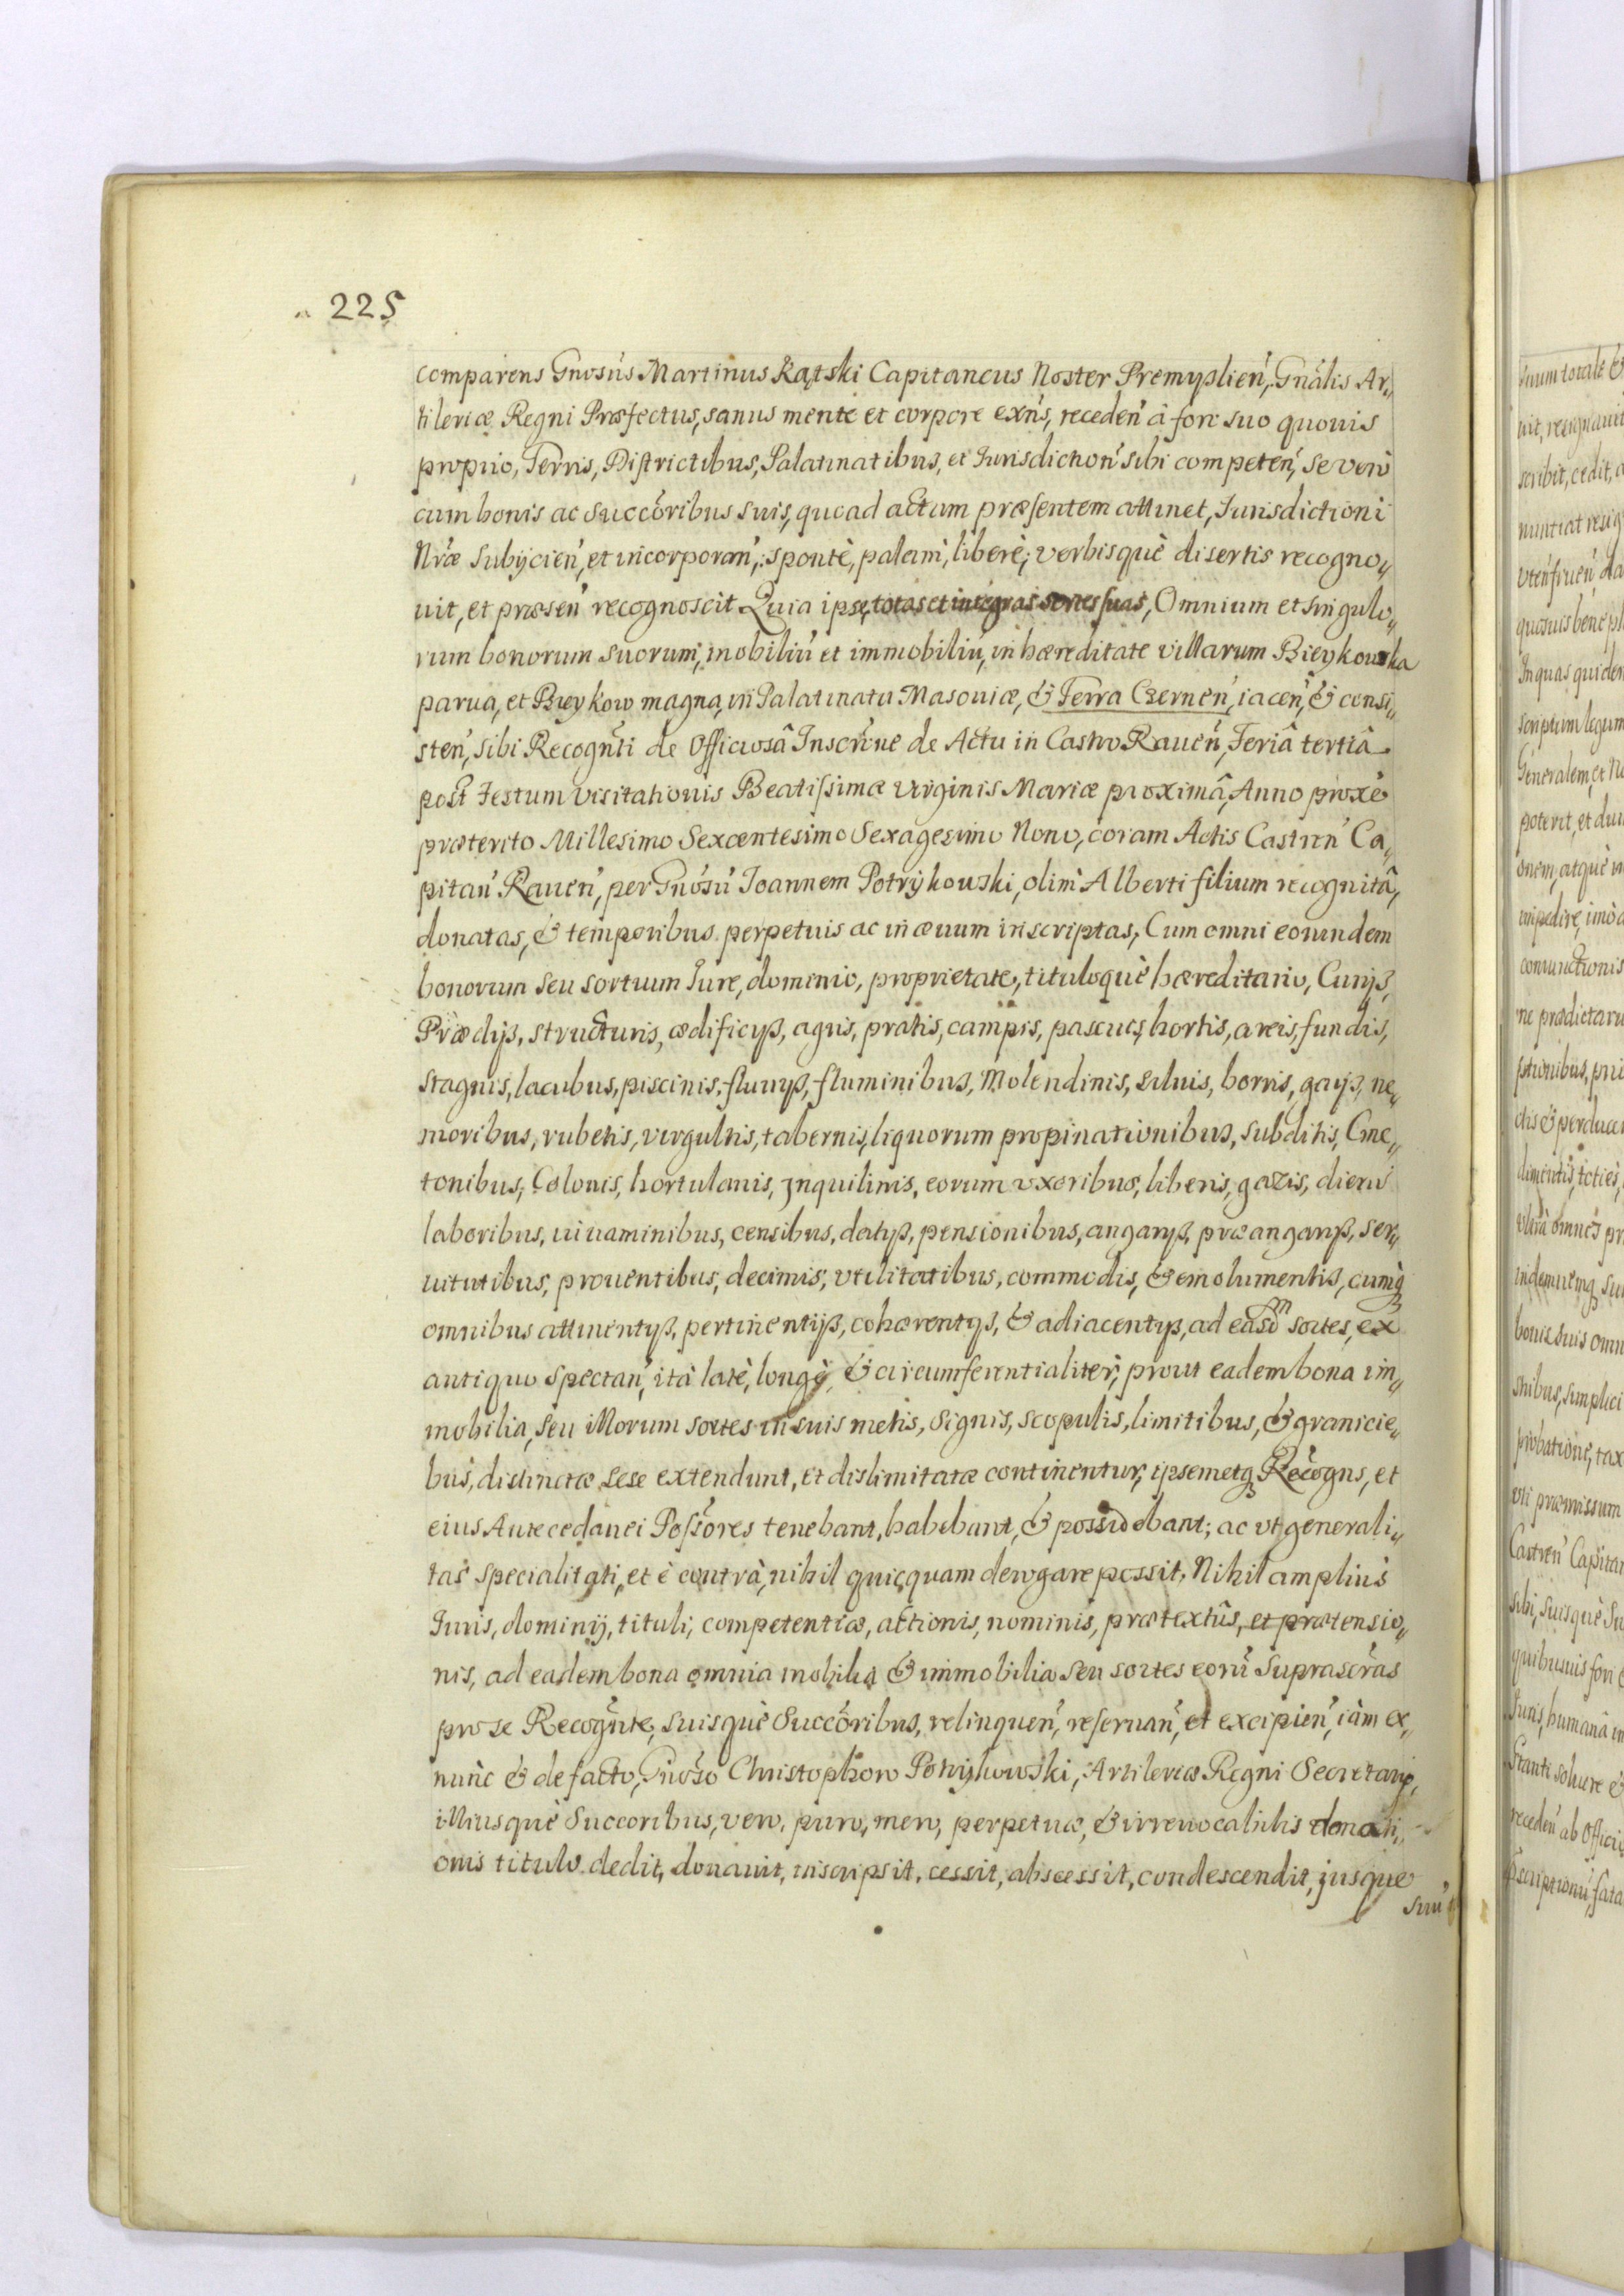 225
comparens Gnosus Martinus Kątski Capitaneus Noster Premyslień, Gnãlis Ar„
tileriæ Regni Præfectus, sanus mente et corpore exñs, recedeń à foro suo quouis
proprio, Terris, Districtibus, Palatinatibus, et Jurisdichoń sibi competeń, se verò
cum bonis ac Succõribus suis, quoad actum præsentem attinet, Jurisdictioni
Nræ Subijcień, et incorporań, spontè, palam, liberè, verbisquè disertis recogno„
uit, et præseń recognoscit Quia ipse totas et integras sortes suas, Omnium et singulo„
rum bonorum suorum, mobiliũ et immobiliũ, in hæreditate villarum Bieykowska
parua, et Bieykow magna, in Palatinatu Masouiæ, & Terra Czerneń, iaceń, & consi„
steń, sibi Recognñti de Officiosâ Inscrõne de Actu in Castro Raueń, Feriâ tertiâ
post Festum Visitationis Beatissimæ Virginis Mariæ proximâ, Anno proxè
præterito Millesimo Sexcentesimo Sexagesimo Nono, coram Actis Castreń Ca„
pitań Raueń, per Gnosũ Joannem Potrÿkowski, olim Alberti filium recognitâ,
donatas, & temporibus perpetuis ac in æuum inscriptas, Cum omni eorundem
bonorum seu sortuum Jure, dominio, proprietate, tituloquè hæreditario, Curijs,
Prædijs, structuris, ædificijs, agris, pratis, campis, pascuis, hortis, areis, fundis,
stagnis, lacubus, piscinis, fluuijs, fluminibus, Molendinis, siluis, borris, gaijs, ne„
moribus, rubetis, virgultis, tabernis, liquorum propinationibus, subditis, Cme„
tonibus, Colonis, hortulanis, Inquilinis, eorum vxoribus, liberis, gazis, dierũ
laboribus, iuuaminibus, censibus, datijs, pensionibus, angarijs, præangarijs, ser„
uitutibus, prouentibus, decimis, vtilitatibus, commodis, & emolumentis, cumq
omnibus attinentijs, pertinentijs, cohærentijs, & adiacentijs, ad easdm sortes, ex
antiquo spectań, ità latè, longè, & circumferentialiter, prout eadem bona im„
mobilia, seu illorum sortes in suis metis, signis, scopulis, limitibus, & granicie„
bus, distinctæ sese extendunt, et dislimitatæ continentur, ipsemetq Recogns, et
eius Antecedanei Possõres tenebant, habebant, & possidebant; ac vt generali„
tas specialitati, et è contrà, nihil quicquam derogare possit, Nihil amplius
Juris, dominij, tituli, competentiæ, actionis, nominis, prætextûs, et prætensio„
nis, ad eadem bona omnia mobilia & immobilia seu sortes eorũ Suprascrãs
pro se Recognñte, suisquè Succõribus, relinqueń, reseruań, et excipień, iàm ex„
nunc & de facto, Gnoso Christophoro Potrijkowski, Artileriæ Regni Secretario,
illiusquè Succoribus, vero, puro, mero, perpetuæ, & irreuocabilis donati„
onis titulo dedit, donauit, inscripsit, cessit, abscessit, condescendit, jusque
suũ